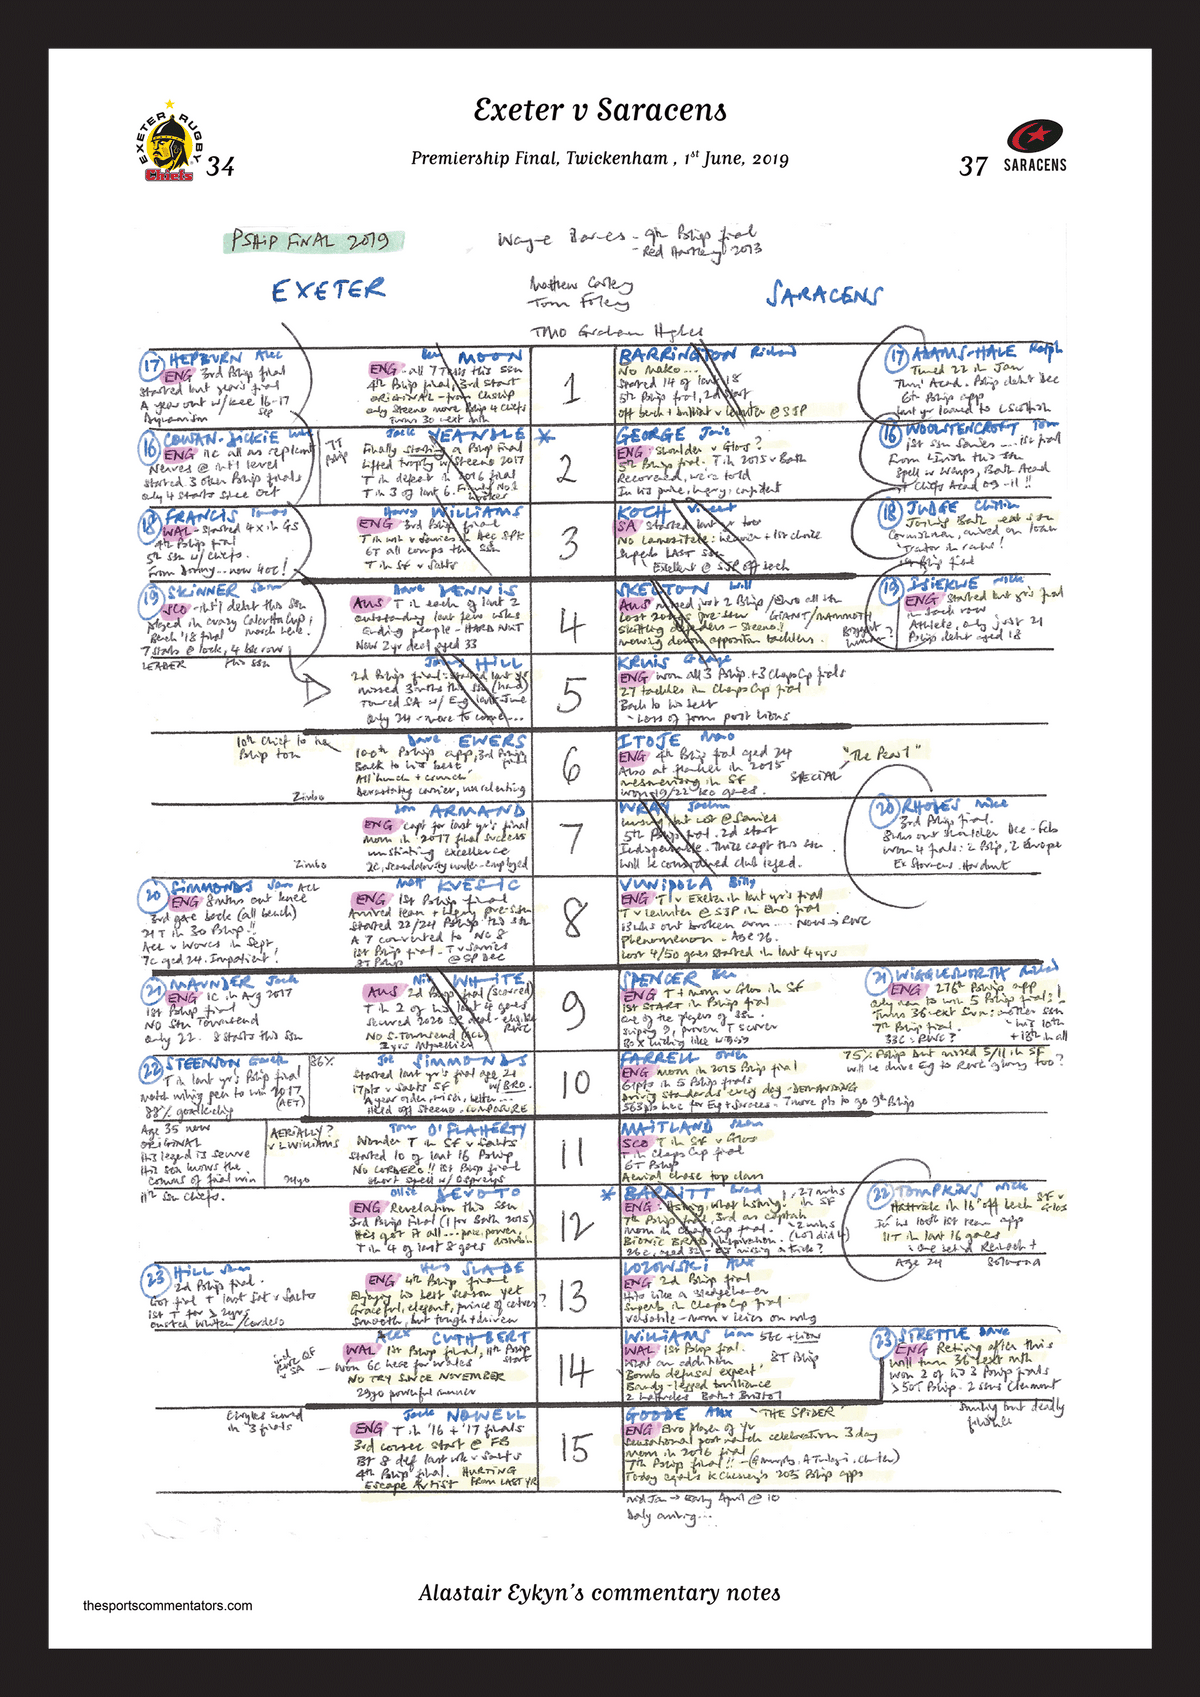 Exeter v Saracens
EXETER RUGBY
Chiefs
34
Premiership Final, Twickenham , 1st June, 2019
37
SARACENS
PSHIP FINAL 2019
Wayne Barnes - 9th Pship final
- Red Hartley 2013
EXETER
Matthew Carley
Tom Foley
SARACENS
TMO Graham Hughes
17 HEPBURN Alec
ENG 3rd Pship final
Started last year's final
A year out w/knee 16-17
Dynamism
Ben MOON
ENG - all 7 Tests this ssn
4th Pship final, 3rd start
ORIGINAL - from Chship
only Steeno more Pship 4 Chiefs
Turns 30 next mth
1
BARRINGTON Richard
No Mako...
Started 14 of last 18
5th Pship final, 2nd start
Off bench + brilliant v Leinster @ SJP
17 ADAMS-HALE Ralph
Turned 22 in Jan
Acad. Pship debut Dec
6th Pship app
last yr loaned to L Scottish
16 COWAN-DICKIE Luke
ENG 11c all as replcmt
Nerves @ int'l level
Started 3 other Pship finals
Only 4 starts since Oct
Jack YEANDLE *
Finally starting a Pship final
Lifted trophy w/Steeno 2017
T in defeat in 2016 final
T in 3 of last 6.
2
GEORGE Jamie
ENG shoulder v Glos?
5th Pship final. T in 2015 v Bath
Recovered, we're told
In his prime, hungry, confident
16 WOOLSTENCROFT Tom
1st ssn Saries ... 1st final
From L Irish this ssn
Spell w Wasps, Bath Acad
+ Chiefs Acad 09-11!!
18 FRANCIS Tomas
WAL - started 4 x in GS
4th Pship final
5th ssn w/ Chiefs.
From Donny... now 40c!
Harry WILLIAMS
ENG 3rd Pship final
6T all comps this ssn
T in SF v Saints
3
KOCH Vincent
SA started last yr too
No Lamositele: heavier + 1st choice
Superb LAST ssn
Excellent @ SJP off bench
18 JUDGE Christian
Joining Bath next ssn
Cornishman, arrived on loan
Traitor in ranks!
1st Pship final
19 SKINNER Sam
SCO - int'l debut this ssn
Played in crazy Calcutta Cup,
March here.
Bench '18 final
7 starts @ lock, 4 bk row
this ssn
LEADER
Dave DENNIS
AUS T in each of last 2
Outstanding last few wks
Ending people - HARD NUT
Now 2yr deal aged 33
4
SKELTON Will
AUS missed just 2 Pship/Euro all ssn
Lost 20kgs pre-ssn GIANT/MAMMOTH
Skittling defenders - Steeno!!
mowing down opposition tacklers.
19 ISIEKWE Nick
ENG Started last yr's final
- back row
Athlete, only just 21
Pship debut aged 18
Jonny HILL
2d Pship final: started last yr
missed 3 mths this ssn (hand)
Toured SA w/ Eng last June
Only 24 - more to come...
5
KRUIS George
ENG won all 3 Pship + 3 Chaps Cup finals
27 tackles in Chaps Cup final
Back to his best
- Loss of form post Lions
10th Chief to 100
Pship ton
Zimbo
Dave EWERS
100th Pship app, 3rd Pship final
Back to his best
All 'hunch + crunch'
Devastating carrier, unrelenting
6
ITOJE Maro
ENG 4th Pship final aged 24
Also at flanker in 2015
Mesmerising in SF
Won 19/22 KO games.
SPECIAL
"The Pearl"
Zimbo
Don ARMAND
ENG Capt for last yr's final
MoM in 2017 final success
unstinting excellence
2c, scandalously under-employed
7
WRAY Jackson
Unsung but not @ Saries
5th Pship final. 2d start
Indispensable. Twice capt this ssn
Will be considered club legend.
20 RHODES Mike
3rd Pship final.
8wks out shoulder Dec - Feb
Won 4 finals: 2 Pship, 2 Europe
Ex Stormers. Hardnut
20 SIMMONDS Sam ACL
ENG 8 mths out knee
3rd game back (all bench)
21 T in 30 Pship!!
ACL v Worcs in Sept
7c aged 24. Impatient!
Matt KVESIC
ENG 1st Pship final
Arrived lean + hungry pre-ssn
Started 22/24 Pship this ssn
A 7 converted to No 8
1st Pship final - T v Saries
@ SP Dec
8T Pship
8
VUNIPOLA Billy
ENG T v Exeter in last yr's final
T v Leinster @ SJP in Euro final
13 wks out broken arm... Now → RWC
Phenomenon - Age 26.
Lost 4/50 games started in last 4 yrs
21 MAUNDER Jack
ENG 1c in Arg 2017
1st Pship final
No Stu Townsend
Only 22. 8 starts this ssn
Nic WHITE
AUS 2d Pship final (scored)
T in 2 of his last 4 games
Secured 2020 SR deal - eligible RWC
No S. Townsend (ACL)
2yrs Montpellier
9
SPENCER Ben
ENG T + mom v Glos in SF
1st START in Pship final
One of the players of ssn.
Sniping 9, proven T scorer
Box kicking like Wiggy
21 WIGGLESWORTH Richard
ENG 276th Pship app
only man to win 5 Pship finals!
Turns 36 next Sun: another ssn
7th Pship final. - his 10th
33c: RWC? + 13th in all
22 STEENSON Gareth
T in last yr's Pship final
Match winning pen to win 2017
(AET)
88% goalkicking
Age 35 now
ORIGINAL
His legend is secure
11th ssn Chiefs.
86%
AERIALLY?
v L WILLIAMS
Joe SIMMONDS
Started last yr's final age 21
17pts v Saints SF w/BRO.
A year older, wiser, better...
Held off Steeno. COMPOSURE
10
FARRELL Owen
ENG mom in 2015 Pship final
61pts in 5 Pship finals
Driving standards every day - DEMANDING
75% Pship but missed 5/11 in SF
Will he drive Eng to RWC glory too?
Tom O'FLAHERTY
Wonder T in SF v Saints
Started 10 of last 16 Pship
No CORDERO!! 1st Pship final
Short spell w/ Ospreys
11
MAITLAND Sean
SCO T in SF v Glos
T in Chaps Cup final
6T Pship
Aerial chase top class
Ollie DEVOTO
ENG Revelation this ssn
3rd Pship final (1 for Bath 2015)
He's got it all... pace, power,
T in 4 of last 8 games
12
* BARRITT Brad
7th Pship final, 3rd as captain
Mom in Chaps Cup final.
BIONIC BRAD
22 TOMPKINS Nick
Hattrick in 16' off bench SF v Glos
In his 100th 1st team app
11T in last 16 games
Age 24
23 HILL Sam
2d Pship final.
Got first T last Sat v Saints
1st T for > 2yrs
ousted Whitten/Cordero
Henry SLADE
ENG 4th Pship final
Enjoying his best season yet
Graceful, elegant, prince of centres?
Smooth, but tough + driven
13
LOZOWSKI Alex
ENG 2d Pship final
Hits like a sledgehammer
Superb in Chaps Cup final.
Versatile - mom v Leics on wing
Alex CUTHBERT
WAL 1st Pship final, 11th Pship start
- Won GC here for Wales
NO TRY SINCE NOVEMBER
29yo powerful runner
14
WILLIAMS Liam 58c + Lion
WAL 1st Pship final.
What an addition 8T Pship
'Bomb defusal expert'
Bandy-legged brilliance
2 hattricks Bath + Bristol
23 STRETTLE Dave
ENG Retiring after this
Will turn 36 next mth
Won 2 of his 3 Pship finals
>50T Pship - 2 ssns Clermont
Smiling but deadly finisher
Chiefs scored
in 3 finals
Jack NOWELL
ENG T in '16 + '17 finals
3rd consec start @ FB
Bt 8 def last wk v Saints
4th Pship final. HURTING
FROM LAST YR
Escape Artist
15
GOODE Alex 'THE SPIDER'
ENG Euro Player of Yr
Sensational post match celebration 3 day
Mom in 2016 final
7th Pship final!!
Today equals K Chesney's 205 Pship apps
Mid Jan → Early April @ 10
Daly arriving...
Alastair Eykyn's commentary notes
thesportscommentators.com